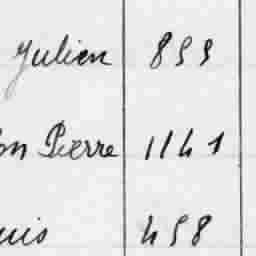 Julien 899
on Pierre 1141
uis 498